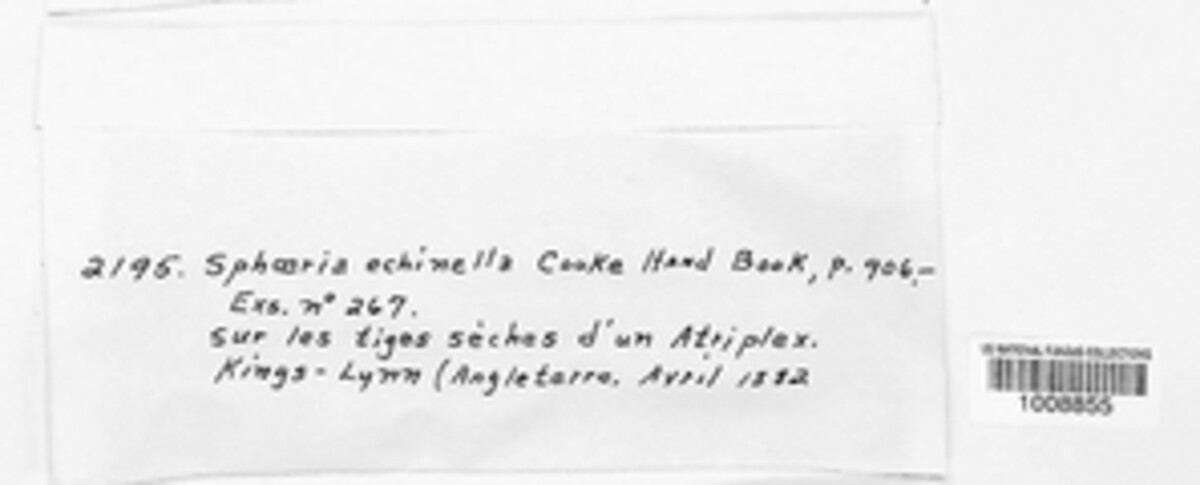 2195. Sphœria echinella Cooke Hand Book, p. 906,-
Exs. n° 267.
sur les tiges sèches d'un Atriplex.
Kings-Lynn (Angleterre. Avril 1882
US NATIONAL FUNGUS COLLECTIONS
1008855